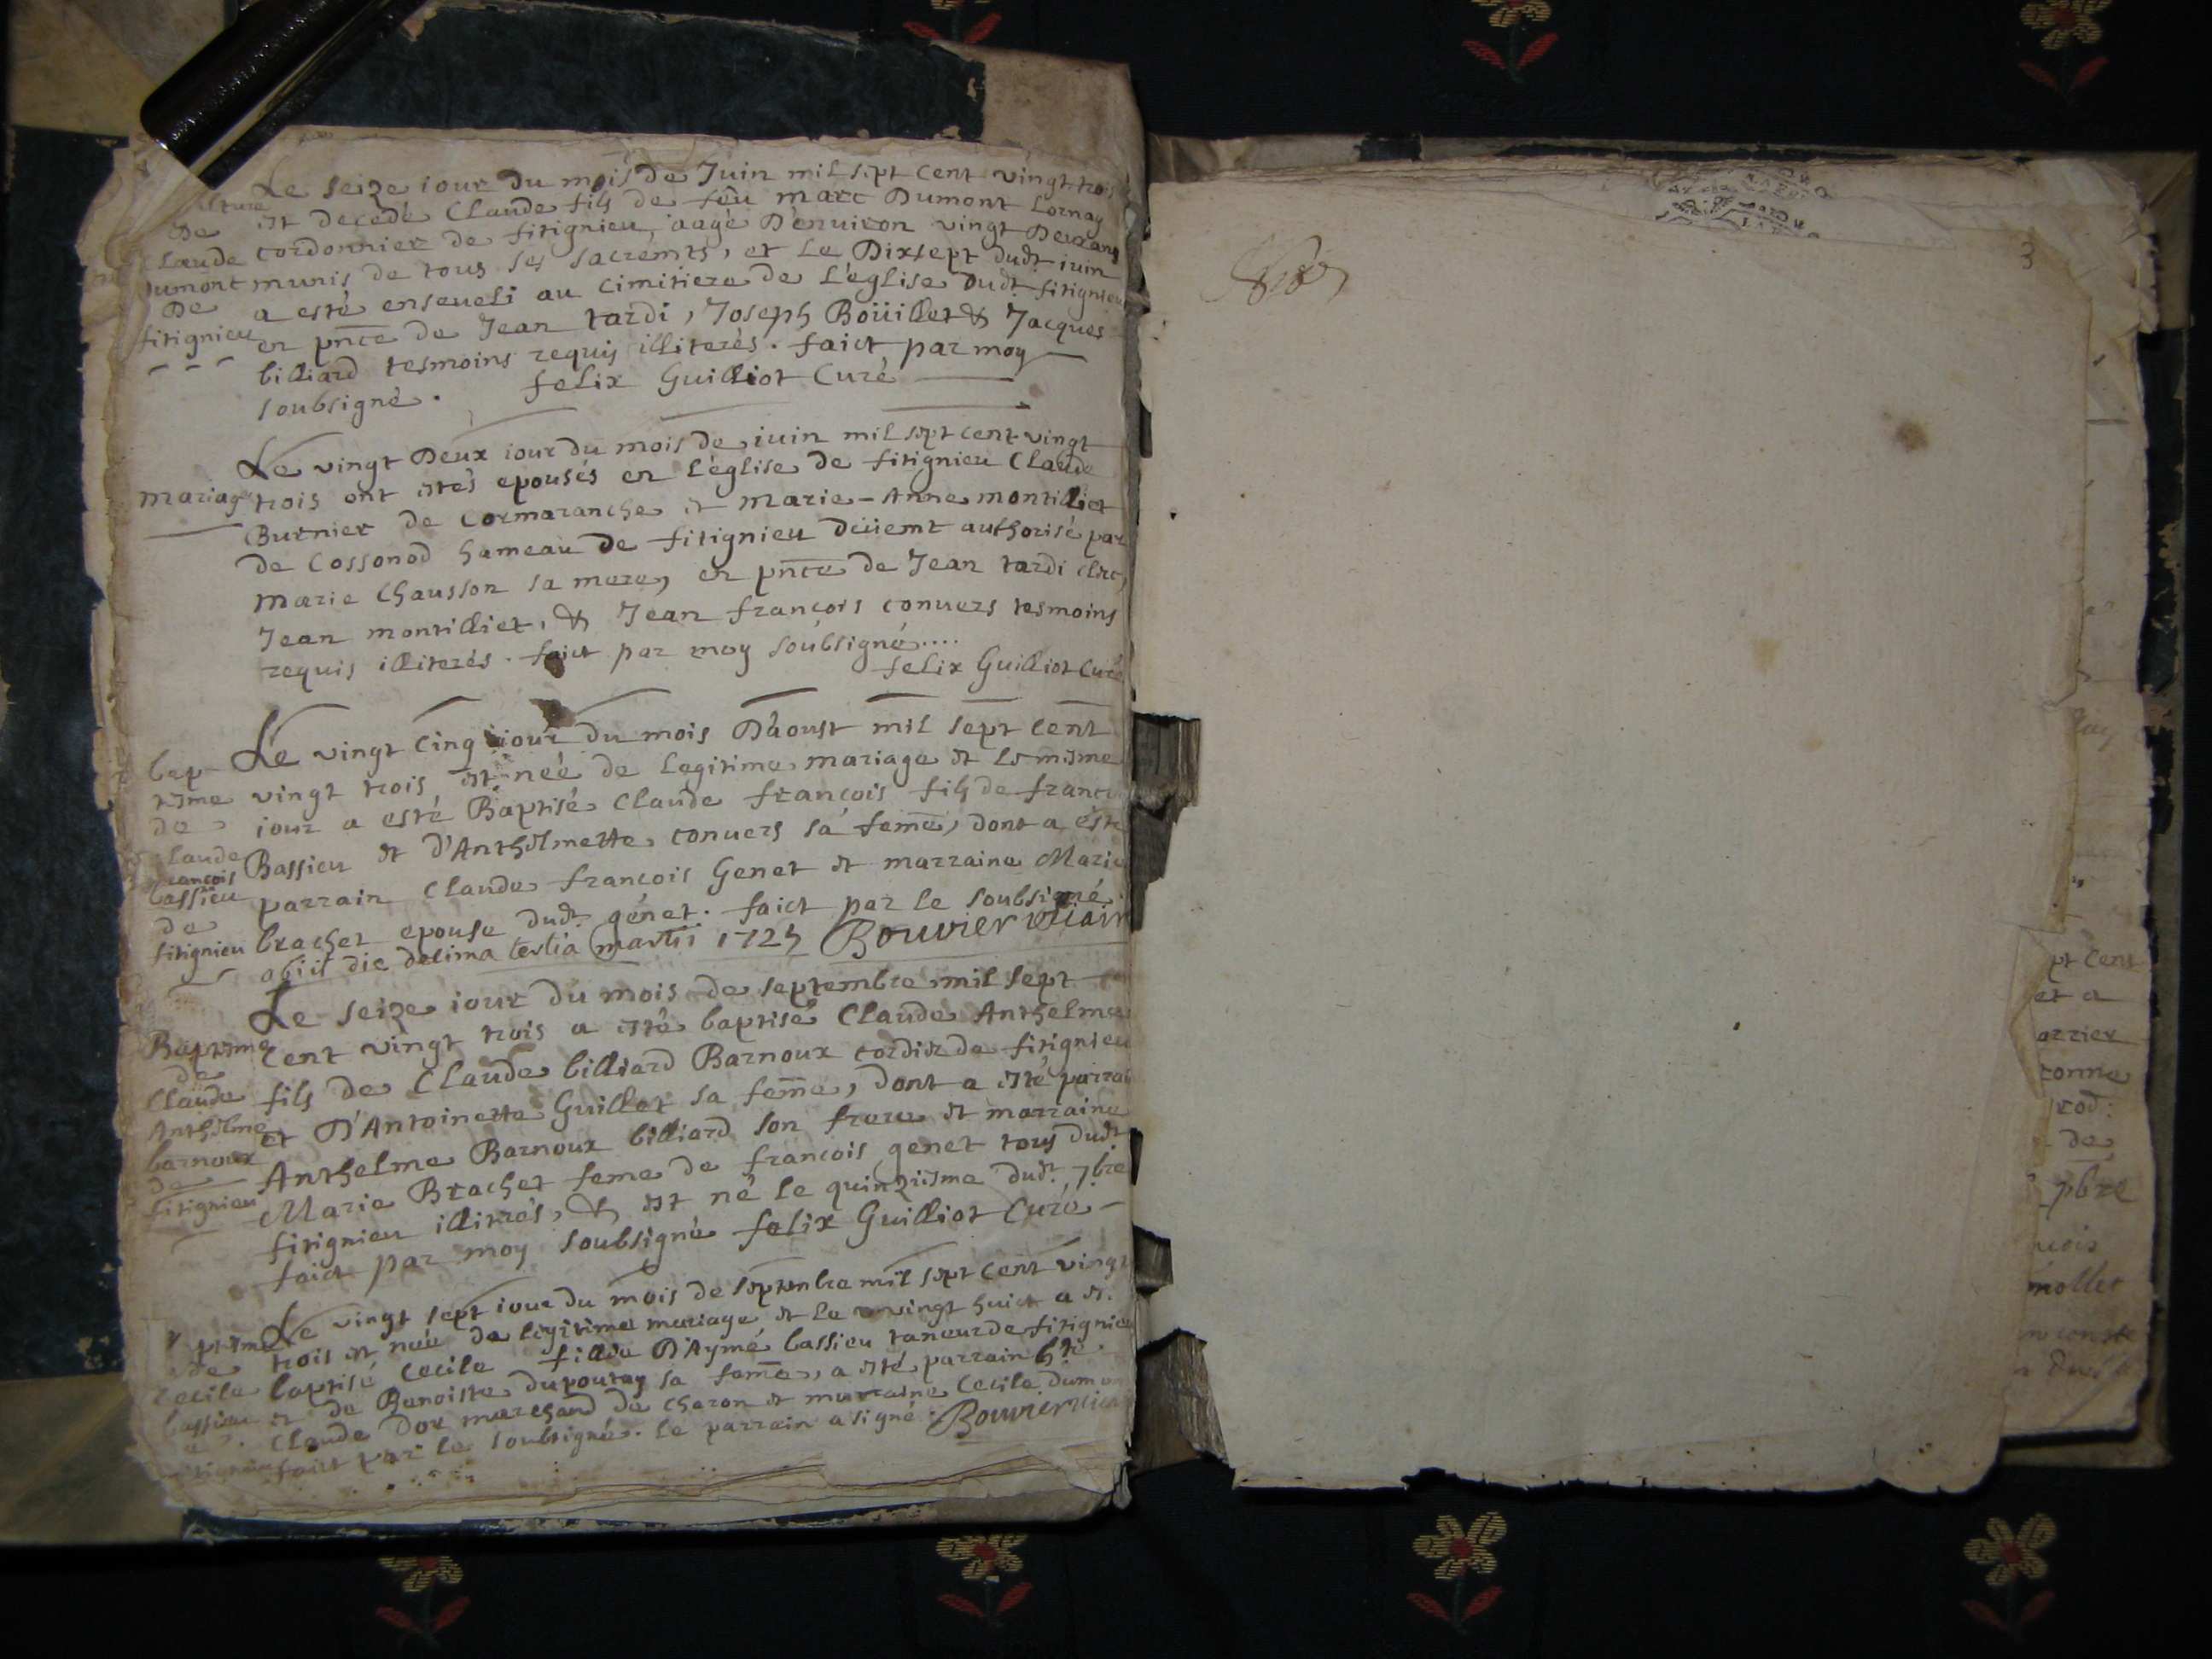 Le seize iour du mois de Juin mil sept cent vingt trois
de est decedé Claude fils de feu marc Dumont Lornay
Claude cordonnier de fitignieu, aagé d'enuiron vingt deux ans
Dumont munis de tous ses sacremts, et le dixsept dudt iuin
de a esté enseueli au cimitiere de L'église dudt fitignieu
fitignieu en pnce de Jean tardi, Joseph Boüillet & Jacques
billiard tesmoins requis illiterés. faict par moy
soubsigné. felix Guilliot Curé
Le vingt Deux iour du mois de iuin mil sept cent vingt
mariage trois ont estés epousés en L'église de fitignieu Claude
Burnier de Cormaranche et Marie-Anne montilliet
de Cossonod hameau de fitignieu deüemt authorisé par
marie Chausson sa mere, en pnce de Jean tardi clerc,
Jean montilliet, & Jean francois conuers tesmoins
requis illiterés. faict par moy soubsigné....
felix Guilliot Curé
Le vingt cinq iour du mois D'aoust mil sept cent
bap- vingt trois, est neé de Legitime mariage et le mesme
tesme iour a esté Baptisé Claude francois fils de francois
de Bassieu et d'Anthelmette conuers sa feme, dont a esté
Claude francois parrain Claude francois Genet et marraine Marie
bassieu de brachet epouse dudt génet. faict par le soubsigné.
fitignieu abiit die decima tertia martii 1725 Bouvier vicair
Le seize iour du mois de septembre mil sept
Baptesme cent vingt trois a esté baptisé Claude Anthelme
de Claude fils de Claude billiard Barnoux cordier de fitignieu
Anthelme et D'Antoinette Guillot sa feme, dont a esté parrain
barnoux Anthelme Barnoux billiard son frere et marraine
de Marie Brachet feme de francois genet tous dudt
fitignieu fitignieu illiterés, & est né le quinziesme dudt 7bre
faict par moy soubsigné felix Guilliot Curé
Le vingt sept iour du mois de septembre mil sept cent vingt
de trois est neé de legitime mariage et le vingt huict a
Cecile baptisé Cecile fille D'Aymé bassieu taneur de fitignieu
bassieu et de Benoiste dupouray sa feme, a esté parrain
Claude Dor marchand de Charon et marraine Cecile
faict par le soubsigné. le parrain a signé. Bouvier
3
pt cent
et a
arrier
conne
rod:
de
7bre
mollet